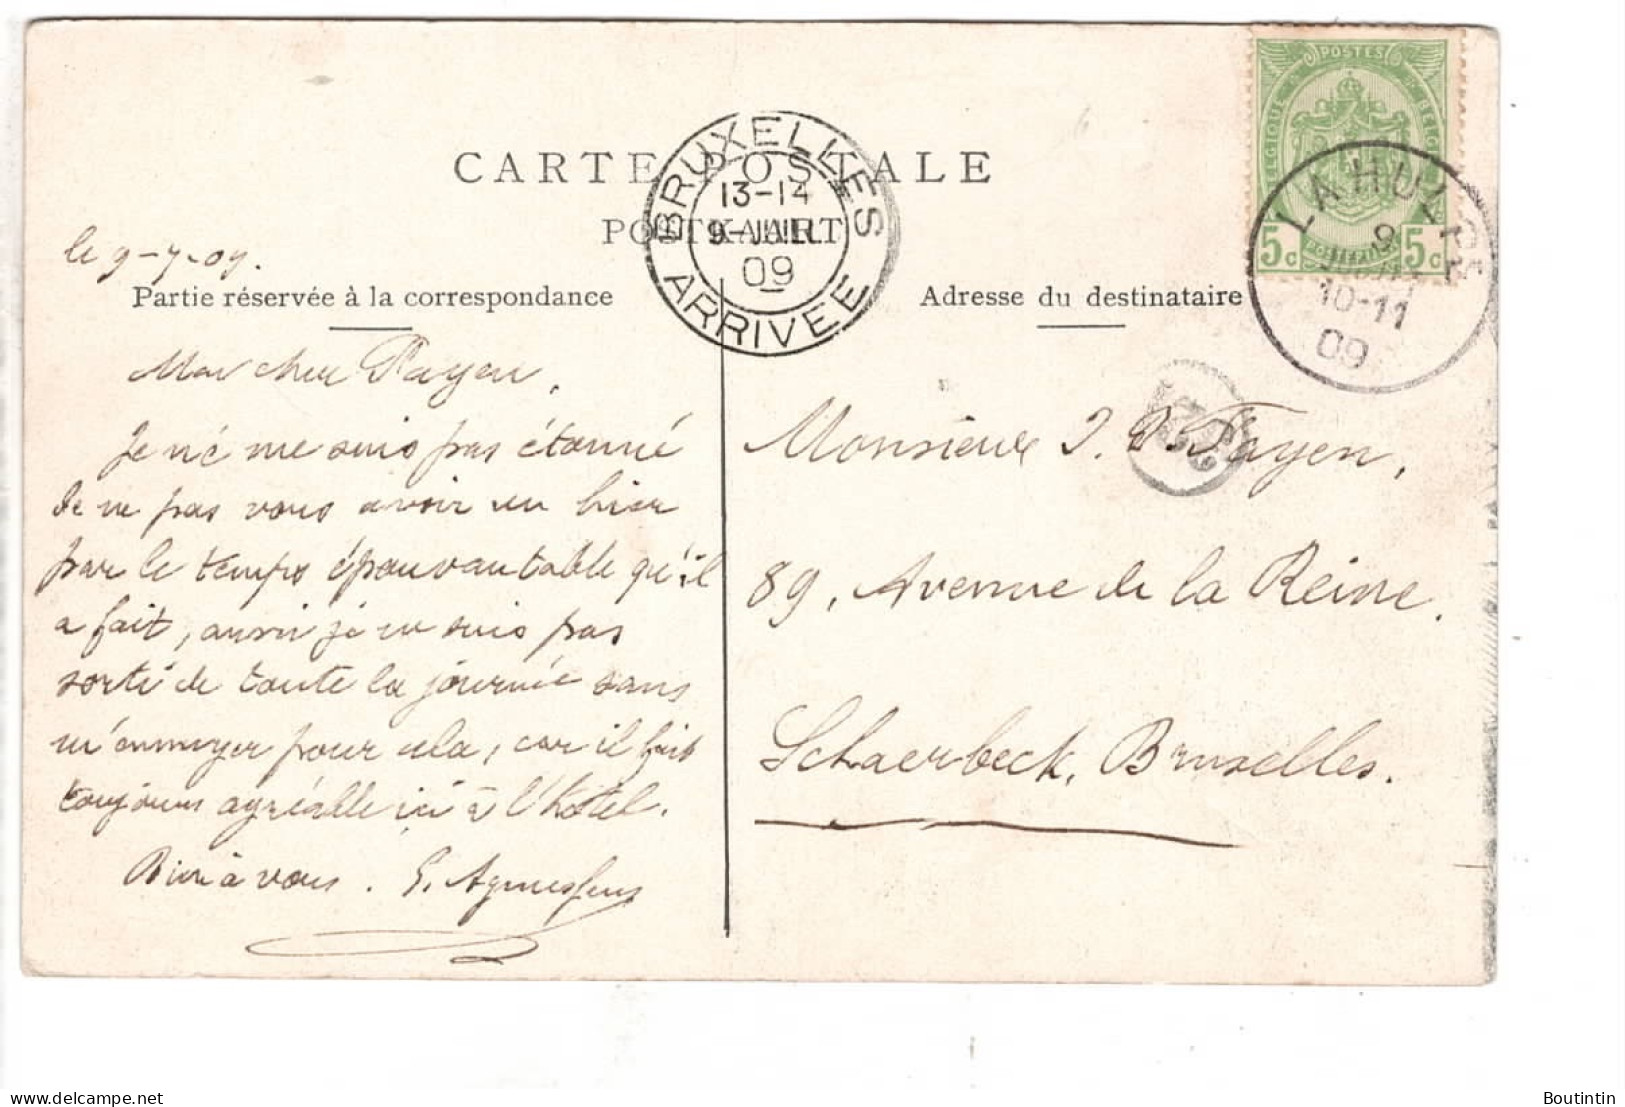 CARTE POSTALE
POSTKAART
BRUXELLES
13-14
9-JUIL
09
ARRIVEE
POSTES
BELGIQUE
5 c 5 c
LA HULPE
9
10-11
09
le 9-7-09.
Partie réservée à la correspondance
Adresse du destinataire
Mon cher Payen,
Je ne me suis pas étonné
de ne pas vous avoir vu hier
par le temps épouvantable qu'il
a fait, aussi je ne suis pas
sorti de toute la journée sans
m'ennuyer pour cela, car il fait
toujours agréable ici à l'hôtel.
Bien à vous.
Monsieur J. Payen,
89, Avenue de la Reine.
Schaerbeck, Bruxelles.
delcampe.net
Boutintin